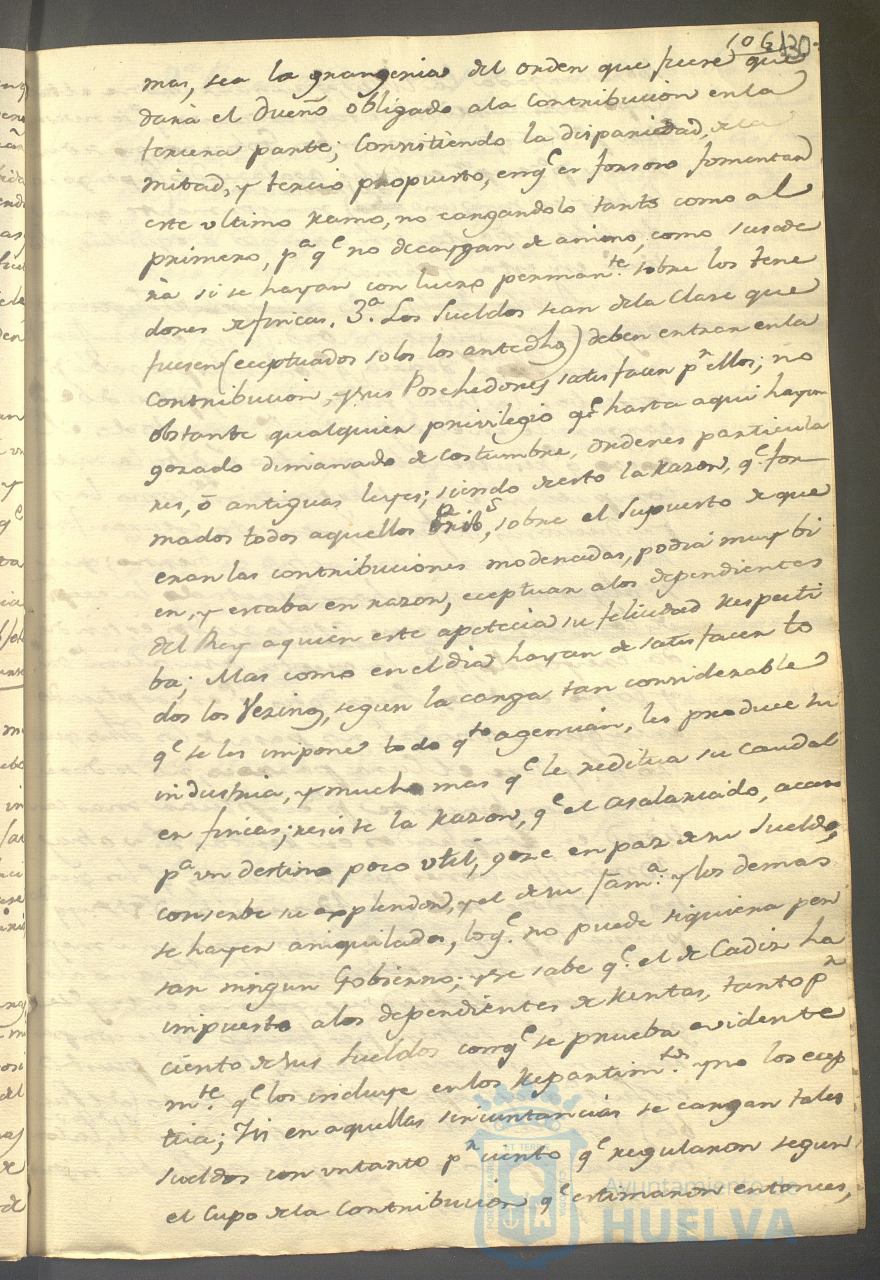 106 130
mas, sea la grangeria del orden que fuere que
dará el Dueño obligado ala Contribucion enla
tercera parte; Consitiendo la disparidad, dela
mitad, y tercio propuesto, en qe. es forsoso fomentar
este ultimo Ramo, no cargandolo tanto como al
primero, pa. qe. no decaygan de animo, como sucede
rá si se hayan con lucro permante. sobre los tene
dores de fincas. 3a. Los Sueldos sean dela Clase que
fuesen (eceptuados solos los antedhos) deben entrar enla
Contribucion, y sus Posehedores satisfacer pr. ellos; no
obstante qualquier privilegio qe. hasta aqui hayan
gozado dimanado de costumbre, ordenes particula
res, ó antiguas leyes; siendo de esto la Razon, qe. for
mados todos aquellos sobre el Supuesto de que
eran las contribuciones moderadas, podrá muy bi
en, y estaba en razon, eceptuar alos dependientes
del Rey aquien este apetecia su felicidad respecti
ba; Mas como en el dia hayan de satisfacer to
dos los Vezinos, segun la carga tan considerable
qe. se les impone todo qto. agencian, les produce su
industria, y mucho mas qe. le reditua su caudal
en fincas; resiste la Razon, qe. el asalariado, acaso
pa. un destino poco util, goze en paz de su Sueldo,
conserbe su explendor, y el de su fama. y los demas
se hayen aniquilados, lo qe. no puede siquiera pen
sar ningun Gobierno; y se sabe qe. el de Cadiz ha
impuesto alos dependientes de Rentas, tanto pr.
ciento de sus Sueldos con qe. se prueba evidente
mte. qe. los incluye en los Repartimtos. y no los ecep
tua; Si en aquellas circuntancias se cargan tales
Sueldos con un tanto pr. ciento qe. regularon segun
el Cupo dela Contribucion qe. estimaron entonces,
Ayuntamiento de
HUELVA